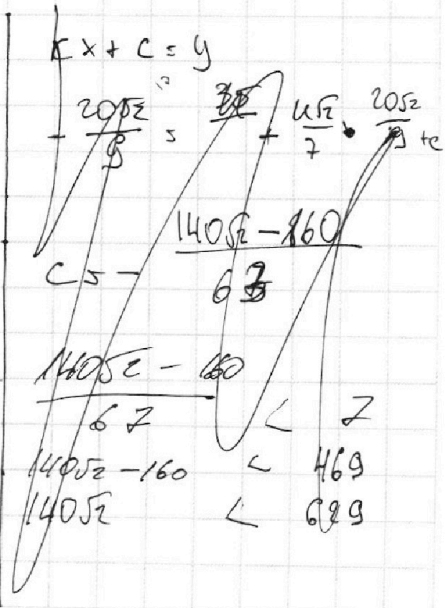 kx + c = y
- 20√2/9 = + 4√2/7 • 20√2/9 + c
c = - (140√2 - 160)/63
(140√2 - 160)/67 < 7
140√2 - 160 < 469
140√2 < 629